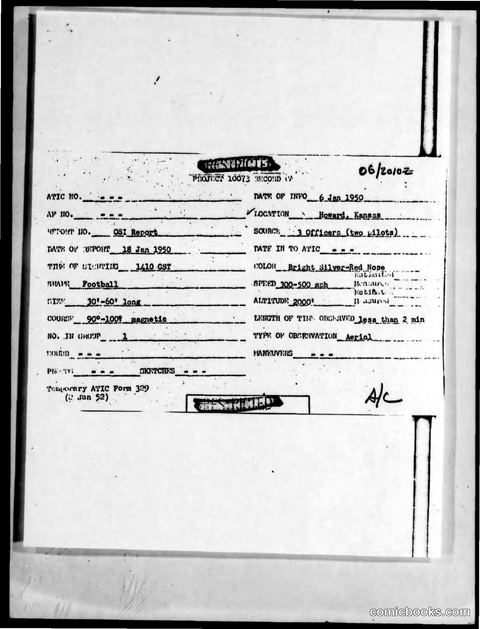 RESTRICTED
06/20102
PROJECT 10073 RECORD OF
ATIC NO. - - - DATE OF INFO 6 Jan 1950
AF NO. - - - LOCATION Howard, Kansas
REPORT NO. OSI Report SOURCE 3 Officers (two pilots)
DATE OF REPORT 18 Jan 1950 DATE IN TO ATIC - - -
TIME OF SIGHTING 1410 CST COLOR Bright Silver-Red Nose
SHAPE Football SPEED 300-500 mph
SIZE 30'-60' long ALTITUDE 2000'
COURSE 90°-100° magnetic LENGTH OF TIME OBSERVED less than 2 min
NO. IN GROUP 1 TYPE OF OBSERVATION Aerial
SOUND - - - MANEUVERS - - -
PHOTOS - - - SKETCHES - - -
Temporary ATIC Form 329
(2 Jan 52)
A/C
RESTRICTED
comicbooks.com